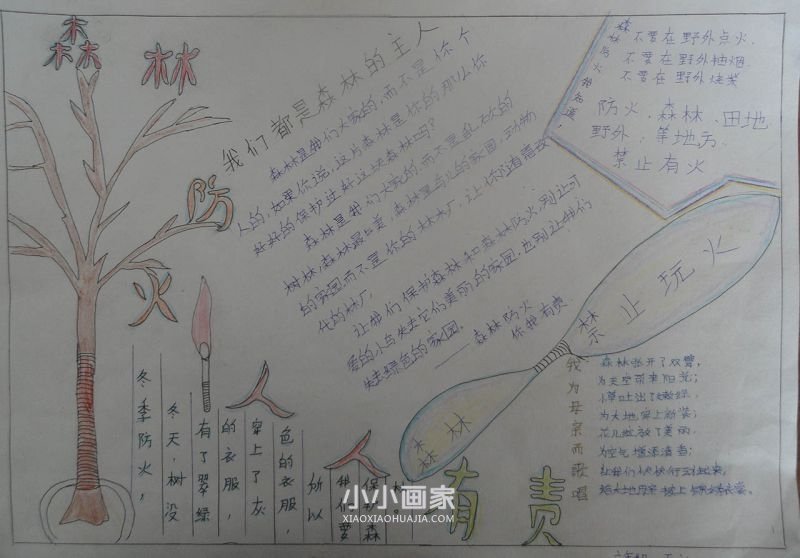 森林
防
火
人人
有责
我们都是森林的主人
森林是我们大家的,而不是你个
人的,如果你说:这片森林是你的那么你
好好的保护过好这片森林吗?
森林是我们大家的而不是乱砍的
树林,森林
的家园而不是你的林木厂,让
化的林厂。
让我们保护森林和森林防火,别让可
爱的小鸟失去它们美丽的家园,也别让我们
失去绿色的家园。
——森林防火
你我有责
森林防火我知道
不要在野外点火.
不要在野外抽烟.
不要在野外烧柴
防火、森林、田地
野外、等地方、
禁止有火
禁止玩火
森林
冬季防火,
冬天,树没
有了翠绿
的衣服,
穿上了灰
色的衣服,
所以
我们要
保护森
林。
我为母亲而歌唱
森林张开了双臂,
为天空带来阳光;
小草吐出了嫩绿,
为大地穿上新装;
花儿绽放了美丽,
为空气增添清香;
让我们
给大地母亲披上绿衣裳。
小小画家
XIAOXIAOHUAJIA.COM